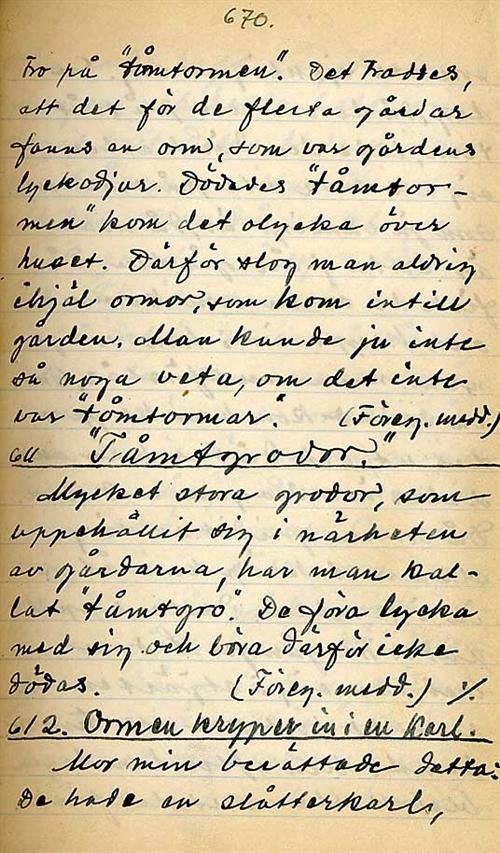 670.
Tro på "tåmtormen". Det troddes,
att det för de flesta gårdar
fanns en orm, som var gårdens
lyckodjur. Dödades "tåmtor-
men" kom det olycka över
huset. Därför slog man aldrig
ihjäl ormor, som kom intill
gården. Man kunde ju inte
så noga veta, om det inte
var "tåmtormar". (Föreg. medd.)
611 "Tåmtgrodor."
Mycket stora grodor, som
uppehållit sig i närheten
av gårdarna, har man kal-
lat "tåmtgro". De föra lycka
med sig och böra därför icke
dödas. (Föreg. medd.) ./.
612. Ormen kryper in i en karl.
Mor min berättade detta:
De hade en slåtterkarl,